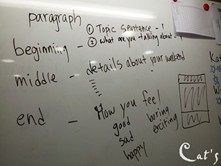 paragraph
① Topic sentence - !
beginning - ② what are you talking about
middle - details about your weekend
end - How you feel
good boring
sad exciting
happy
Cat's